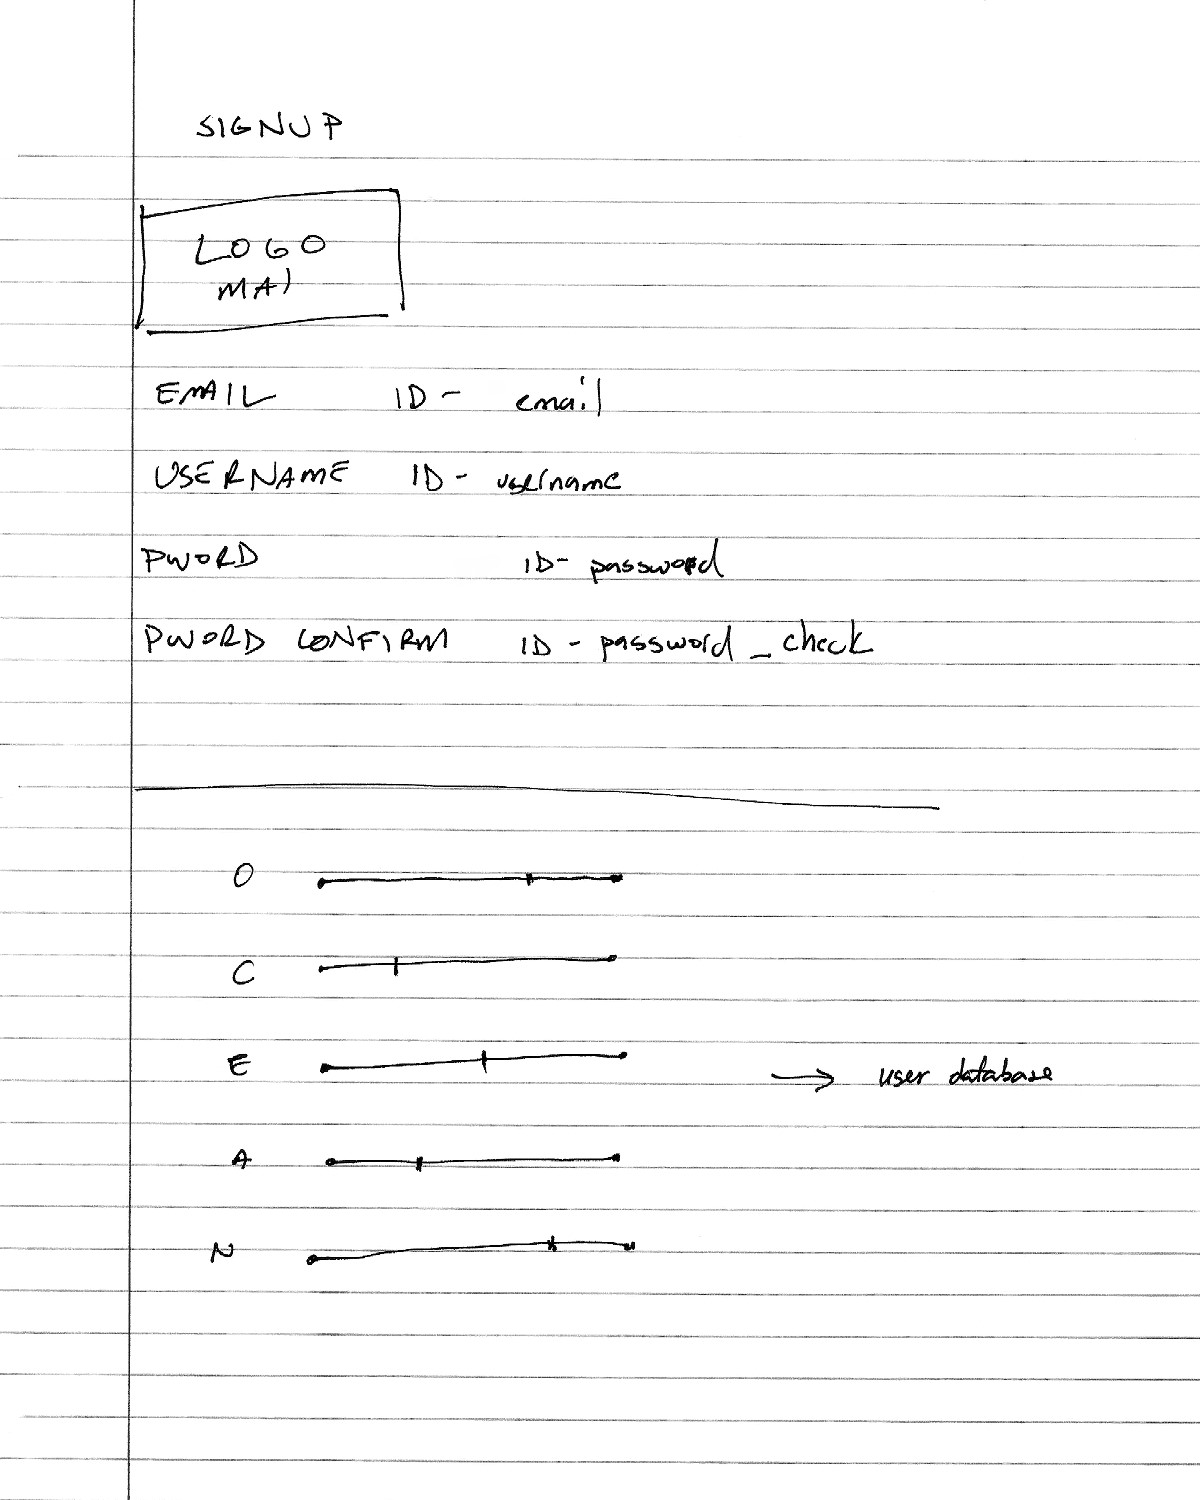 SIGNUP
LOGO
MAI
EMAIL ID - email
USERNAME ID - username
PWORD ID - password
PWORD CONFIRM ID - password_check
O
C
E → user database
A
N